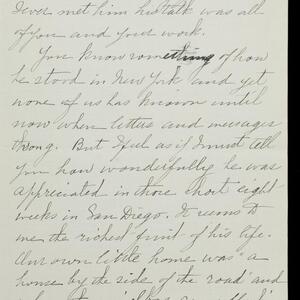 I ever met him his talk was all
of you and your work.
You know something of how
he stood in New York, and yet
none of us has known until
now when letters and messages
throng. But I feel as if I must tell
you how wonderfully he was
appreciated in those short eight
weeks in San Diego. It seems to
me the richest fruit of his life.
Our own little home was "a
house by the side of the road" and